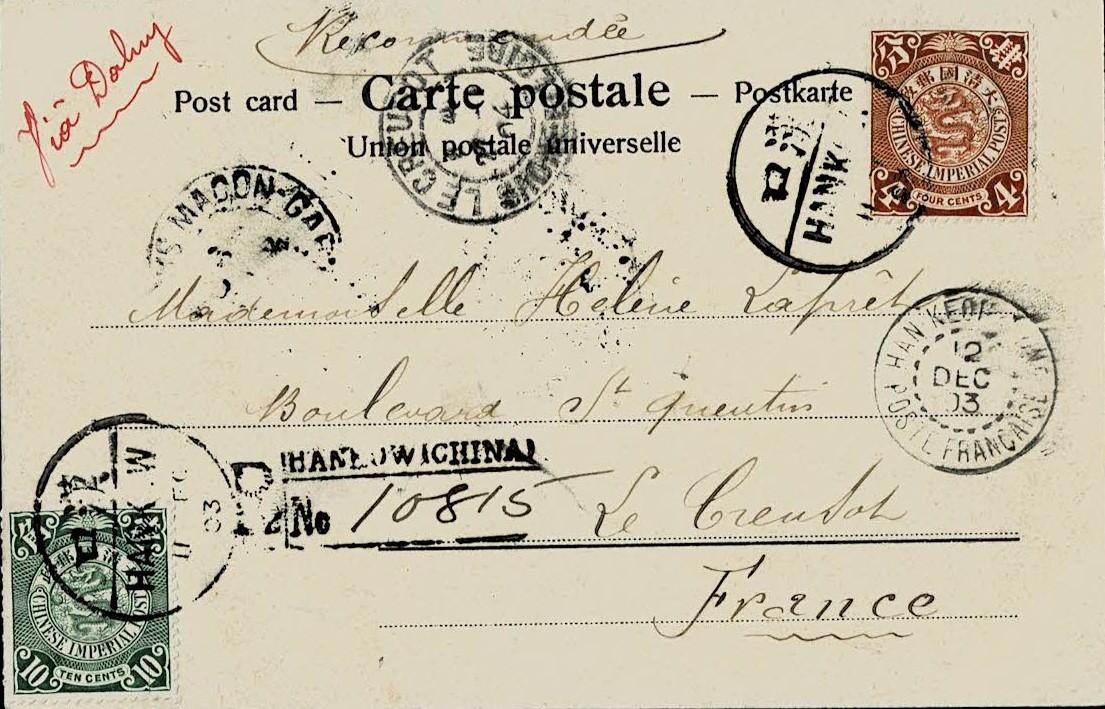 Recommandée
Viâ Dalny
Post card — Carte postale — Postkarte
Union postale universelle
大清國郵政
CHINESE IMPERIAL POST
4 FOUR CENTS 4
HANK
11
LE CREUSOT
MACON-
Mademoiselle Hélène Laprêt
HAN KEOU
12
DEC
03
POSTE FRANCAISE
Boulevard St Quentin
HANKOW (CHINA)
R No 10815
Le Creusot
France
HANK W
11 DEC
03
CHINESE IMPERIAL POST
10 TEN CENTS 10